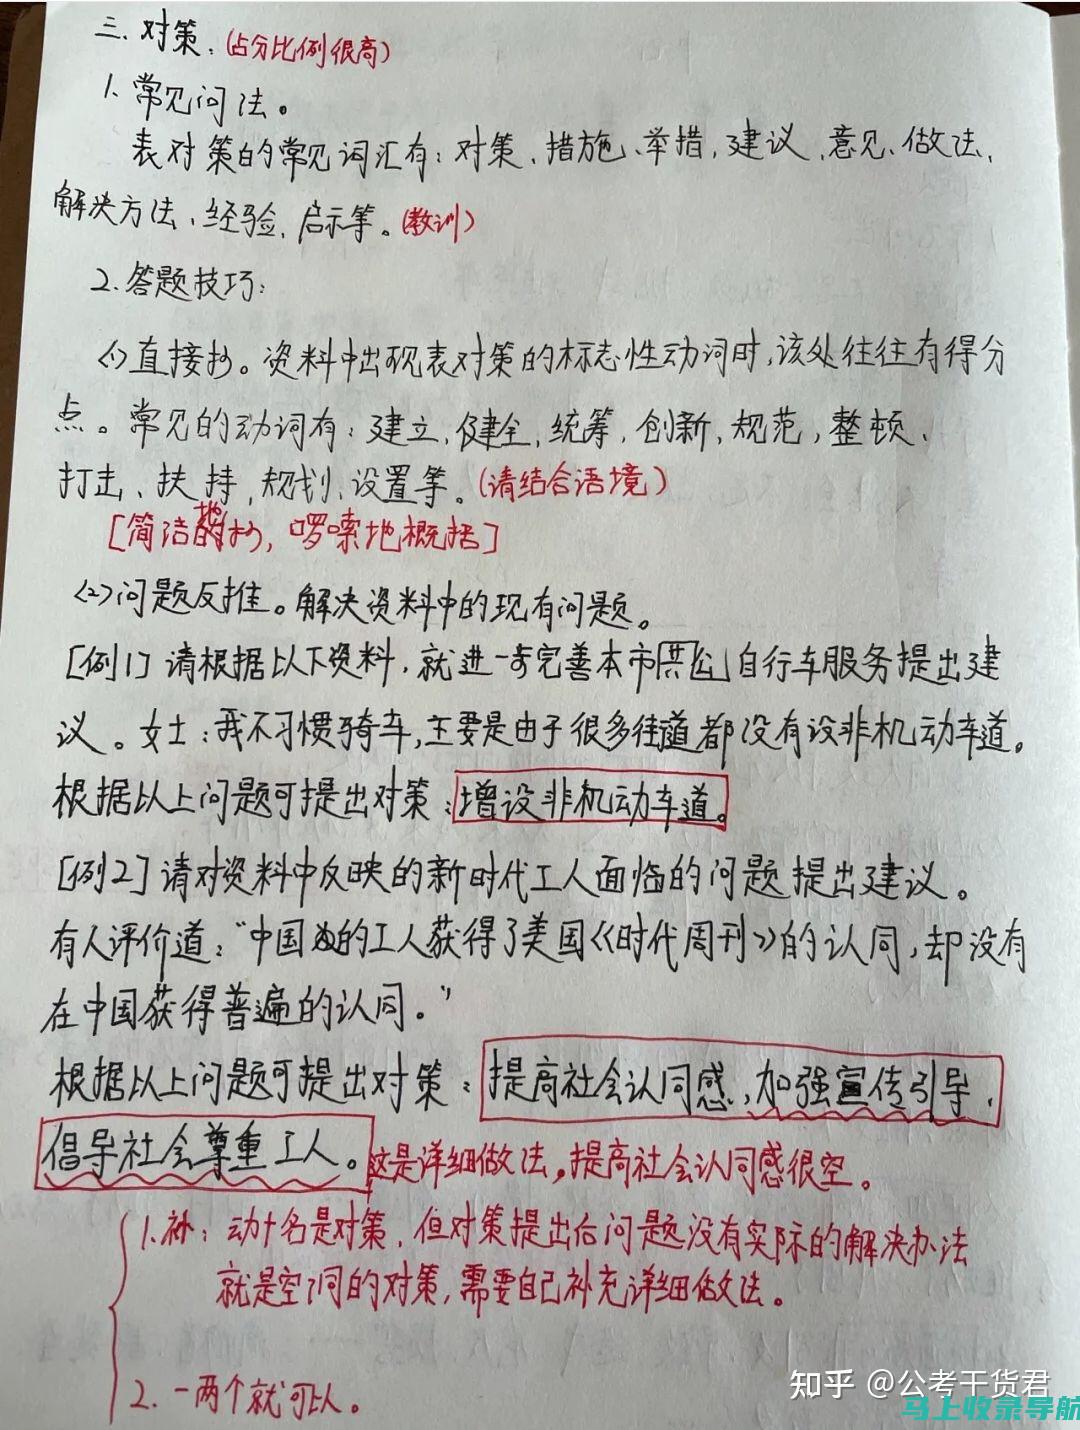 三. 对策: (占分比例很高)
1. 常见问法。
表对策的常见词汇有: 对策、措施、举措, 建议、意见、做法、
解决方法、经验、启示等。(教训)
2. 答题技巧:
<1>直接抄。资料中出现表对策的标志性动词时,该处往往有得分
点。常见的动词有: 建立、健全、统筹、创新、规范, 整顿、
打击、扶持, 规划、设置等。(请结合语境)
[简洁地抄, 啰嗦地概括]
<2>问题反推。解决资料中的现有问题。
[例1] 请根据以下资料, 就进一步完善本市公共自行车服务提出建
议。女士: 我不习惯骑车,主要是由于很多街道都没有设非机动车道。
根据以上问题可提出对策: 增设非机动车道。
[例2] 请对资料中反映的新时代工人面临的问题提出建议。
有人评价道: “中国的工人获得了美国《时代周刊》的认同, 却没有
在中国获得普遍的认同。”
根据以上问题可提出对策: 提高社会认同感, 加强宣传引导,
倡导社会尊重工人。这是详细做法。提高社会认同感很空。
1. 补: 动+名是对策, 但对策提出后问题没有实际的解决办法
就是空洞的对策, 需要自己补充详细做法。
2. 一两个就可以。
知乎 @公考干货君
马上收录导航